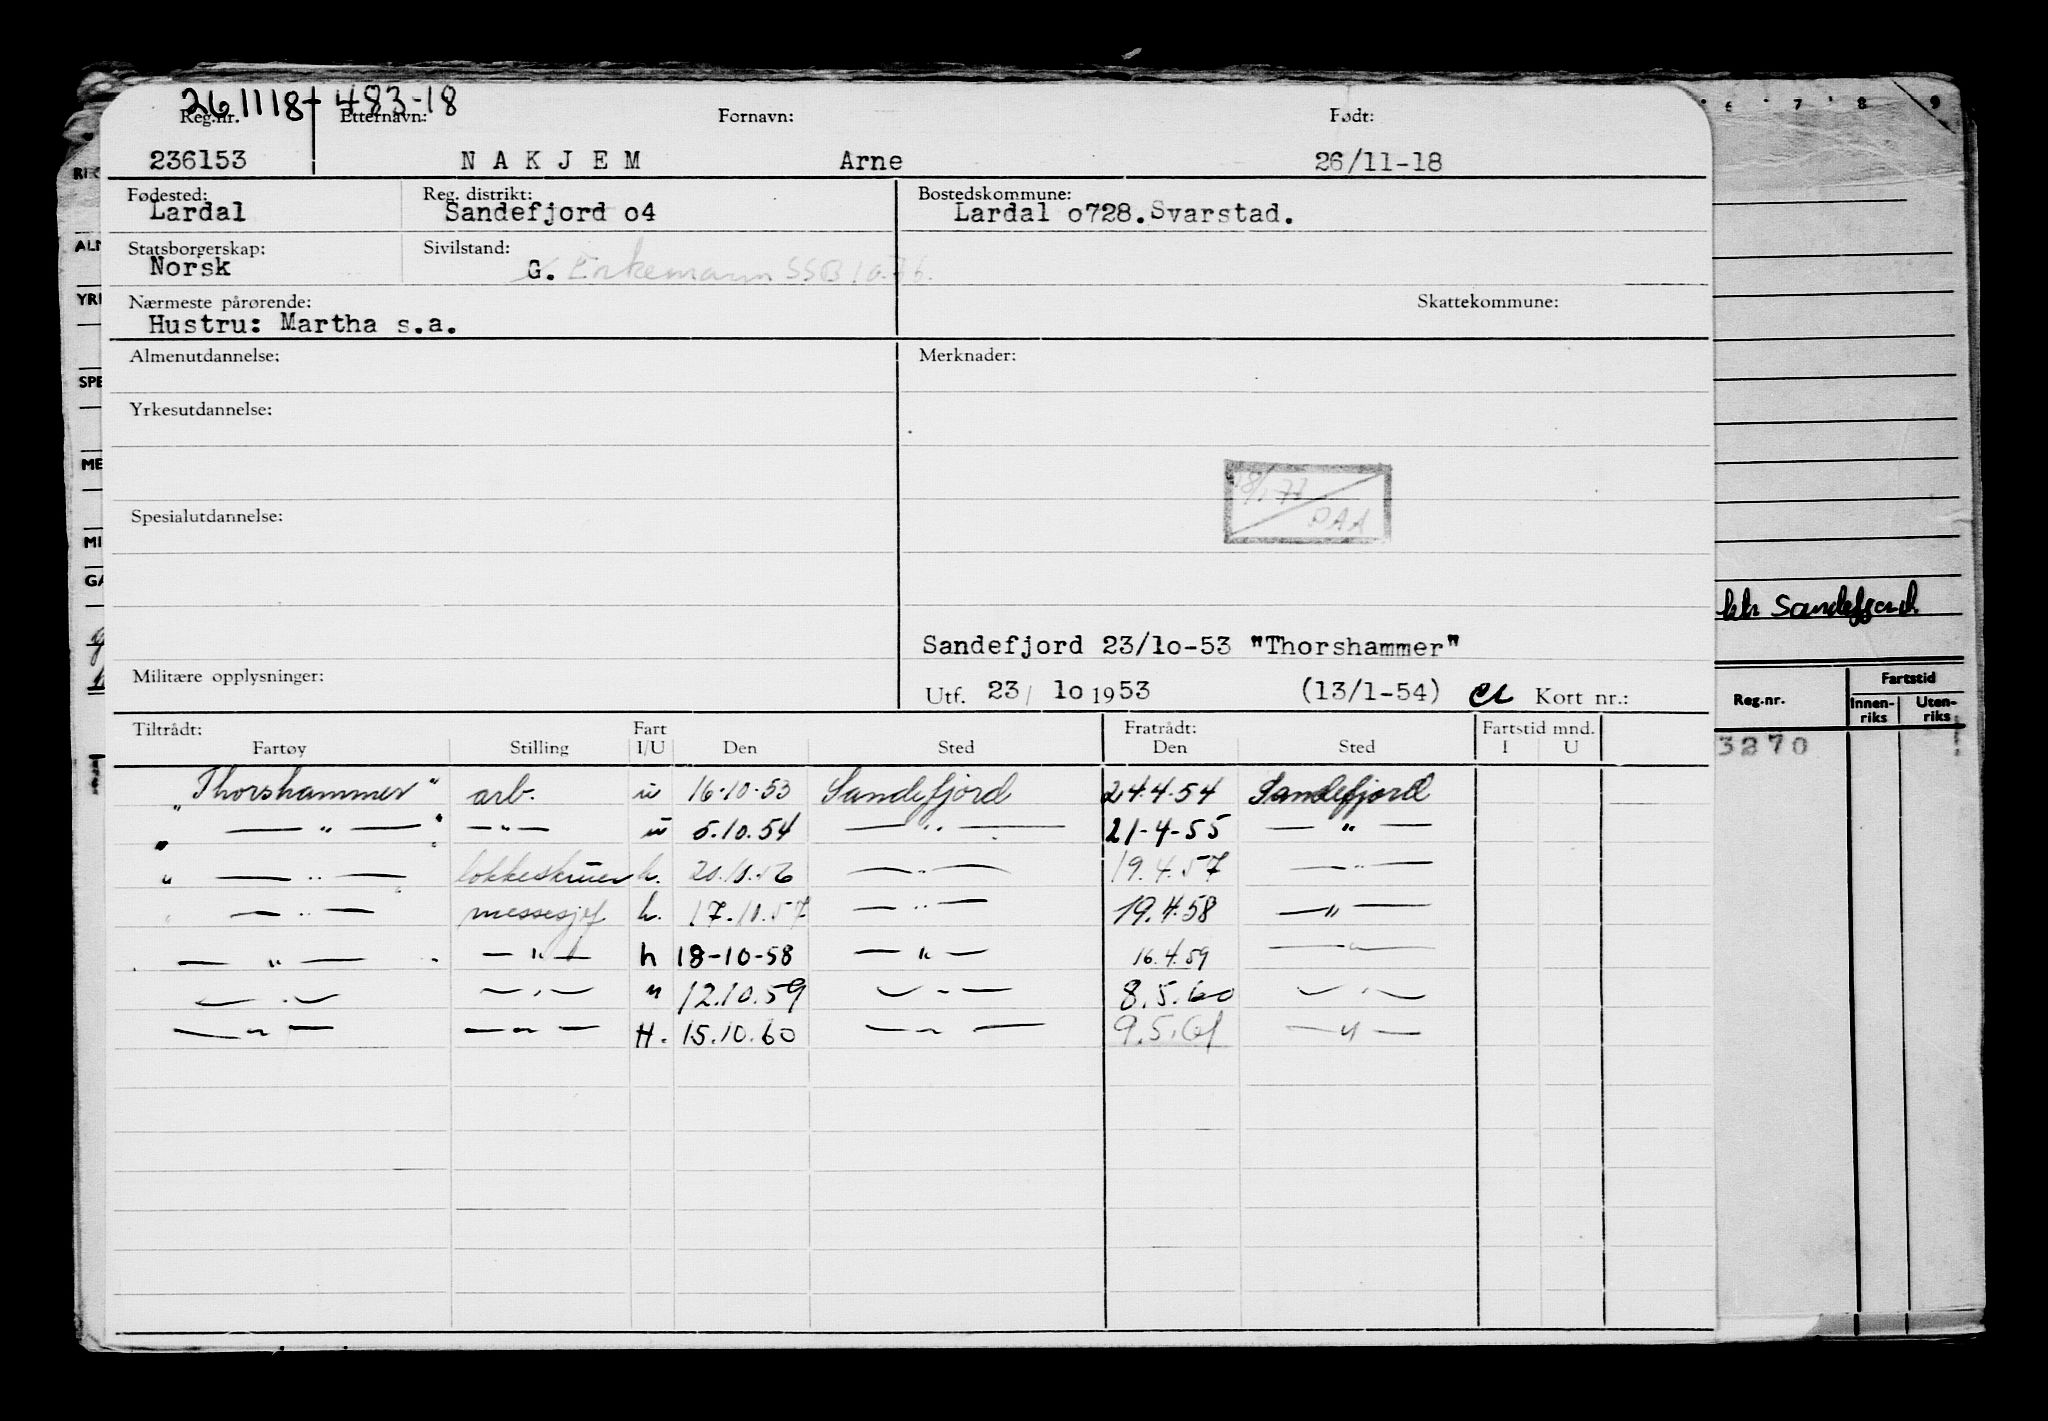 261118 483-18
Reg.nr. Etternavn: Fornavn: Født:
236153 NAKJEM Arne 26/11-18
Fødested: Reg. distrikt: Bostedskommune:
Lardal Sandefjord o4 Lardal o728. Svarstad.
Statsborgerskap: Sivilstand:
Norsk G. Enkemann SSB 10.76.
Nærmeste pårørende: Skattekommune:
Hustru: Martha s.a.
Almenutdannelse: Merknader:
Yrkesutdannelse:
Spesialutdannelse:
PAA
Sandefjord 23/1o-53 "Thorshammer"
Militære opplysninger:
Utf. 23/ 1o 1953 (13/1-54) Kort nr.:
Tiltrådt: Fart Fratrådt: Fartstid mnd.
Fartøy Stilling I/U Den Sted Den Sted I U
"Thorshammer" arb. u 16-10-53 Sandefjord 24.4.54 Sandefjord
" — " — " — " — u 5.10.54 — " — 21-4-55 — " —
" — " — " h. — " — 19.4.57 — " —
" — " — messesjef h. 17.10.57 — " — 19.4.58 — " —
— " — — " — h 18-10-58 — " — 16.4.59 — " —
— " — — " — " 12.10.59 — " — 8.5.60 — " —
— " — — " — H. 15.10.60 — " — 9.5.61 — " —
6 7 8 9
REG
ALM
YRK
SPE
ME
MI
GA
Sandefjord
Reg.nr. Fartstid
Innen-riks Uten-riks
3270